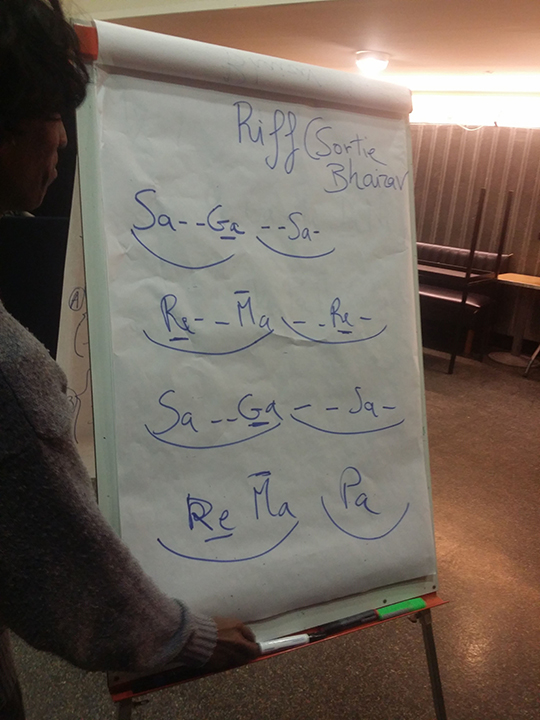 Riff (Sortie
Bhairav
Sa - - Ga - - Sa -
Re - - Ma - - Re -
Sa - - Ga - - Sa -
Re Ma Pa
A